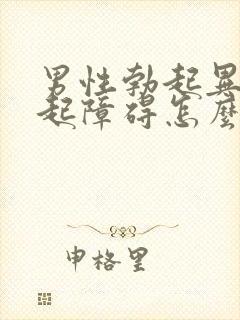 男性勃起異
起障碍怎麼
申格里